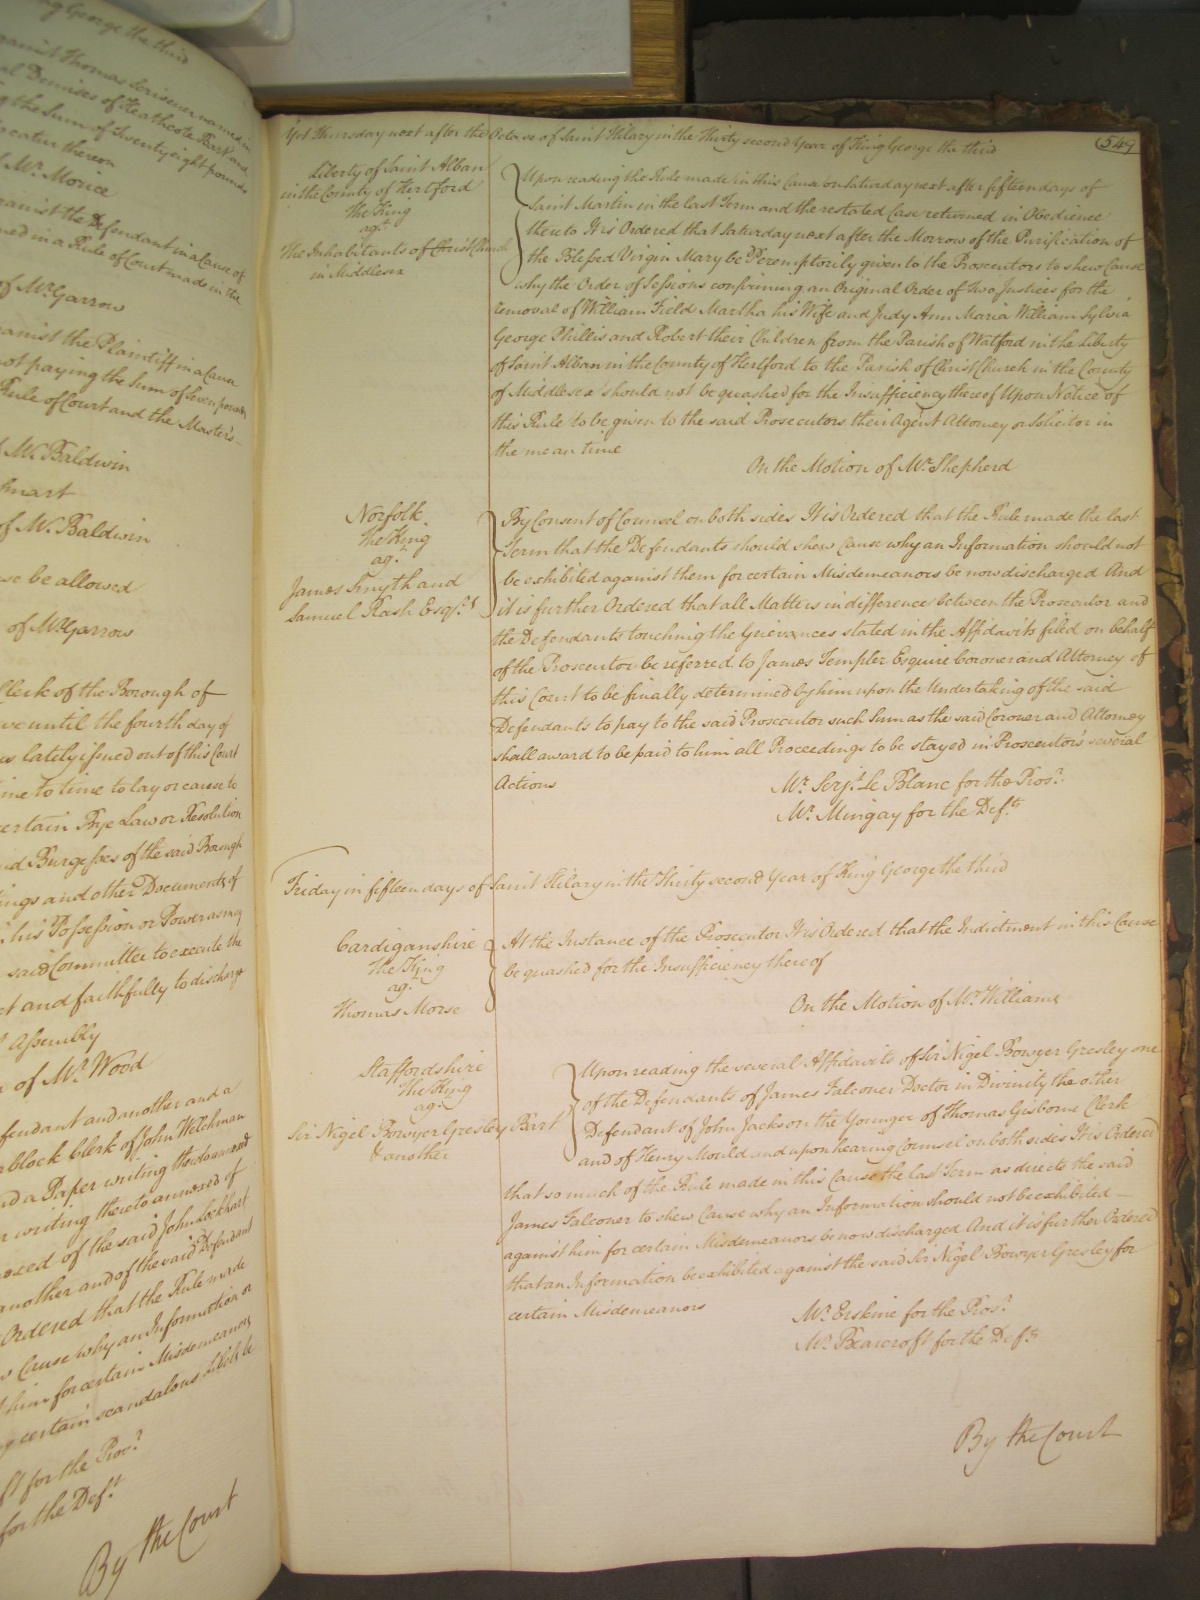 ng George the third
gainst Thomas Scrivener named in
al Demises of Heathcote Bart and
g the Sum of Twenty eight pounds
locatur thereon
f Mr. Morice
gainst the Defendant in a Cause of
ned in a Rule of Court made in the
of Mr. Garrow
gainst the Plaintiff in a Cause
not paying the Sum of Seven pounds
Rule of Court and the Master's
f Mr. Baldwin
smart
of Mr. Baldwin
use be allowed
of Mr. Garrow
Clerk of the Borough of
ve until the fourth day of
us lately issued out of this Court
ime to time to lay or cause to
certain Bye Law or Resolution
nd Burgesses of the said Borough
ings and other Documents of
n his Possession or Power as may
said Committee to execute the
ct and faithfully to discharge
Assembly
n of Mr. Wood
fendant and another and a
block Clerk of John Welchman
nd a Paper writing thereto annexed
r writing thereto annexed of
nexed of the said John Lockhart
another and of the said Defendant
Ordered that the Rule made
w Cause why an Information or
him for certain Misdemeanors
g certain scandalous Libels be
ft for the Pros.r
for the Def.t
By the Court
549
Yet Thursday next after the Octave of Saint Hilary in the Thirty second Year of King George the third
Liberty of Saint Alban
in the County of Hertford
The King
ag.t
The Inhabitants of Christ Church
in Middlesex
Upon reading the Rule made in this Cause on Saturday next after fifteen days of
Saint Martin in the last Term and the restated Case returned in Obedience
thereto It is Ordered that Saturday next after the Morrow of the Purification of
the Blessed Virgin Mary be Peremptorily given to the Prosecutors to shew Cause
why the Order of Sessions confirming an Original Order of Two Justices for the
removal of William Field Martha his Wife and Judy Ann Maria William Sylvia
George Phillis and Robert their Children from the Parish of Watford in the Liberty
of Saint Alban in the County of Hertford to the Parish of Christ Church in the County
of Middlesex should not be quashed for the Insufficiency thereof Upon Notice of
this Rule to be given to the said Prosecutors their Agent Attorney or Solicitor in
the mean time
On the Motion of Mr. Shepherd
Norfolk
The King
ag.t
James Smyth and
Samuel Rash Esq.rs
By Consent of Counsel on both sides It is Ordered that the Rule made the last
Term that the Defendants should shew Cause why an Information should not
be exhibited against them for certain Misdemeanors be now discharged And
it is further Ordered that all Matters in difference between the Prosecutor and
the Defendants touching the Grievances stated in the Affidavits filed on behalf
of the Prosecutor be referred to James Templer Esquire Coroner and Attorney of
this Court to be finally determined by him upon the Undertaking of the said
Defendants to pay to the said Prosecutor such Sum as the said Coroner and Attorney
shall award to be paid to him all Proceedings to be stayed in Prosecutor's several
Actions
Mr. Serj.t Le Blanc for the Pros.r
Mr. Mingay for the Def.ts
Friday in fifteen days of Saint Hilary in the Thirty second Year of King George the third
Cardiganshire
The King
ag.t
Thomas Morse
At the Instance of the Prosecutor It is Ordered that the Indictment in this Cause
be quashed for the Insufficiency thereof
On the Motion of Mr. Williams
Staffordshire
The King
ag.t
Sir Nigel Bowyer Gresley Bart
& another
Upon reading the several Affidavits of Sir Nigel Bowyer Gresley one
of the Defendants of James Falconer Doctor in Divinity the other
Defendant of John Jackson the Younger of Thomas Gisborne Clerk
and of Henry Mould and upon hearing Counsel on both sides It is Ordered
that so much of the Rule made in this Cause the last Term as directs the said
James Falconer to shew Cause why an Information should not be exhibited
against him for certain Misdemeanors be now discharged And it is further Ordered
that an Information be exhibited against the said Sir Nigel Bowyer Gresley for
certain Misdemeanors
Mr. Erskine for the Pros.r
Mr. Bearcroft for the Def.ts
By the Court